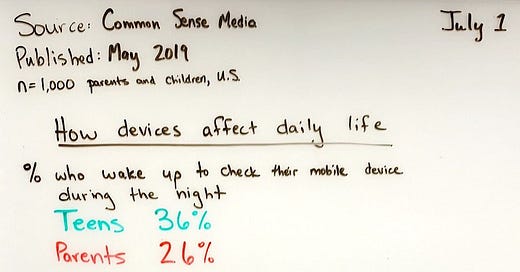 Source: Common Sense Media
July 1
Published: May 2019
n=1,000 parents and children, U.S.
How devices affect daily life
% who wake up to check their mobile device
during the night
Teens 36%
Parents 26%